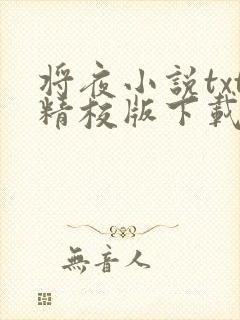 将夜小説txt
精校版下載
無音人